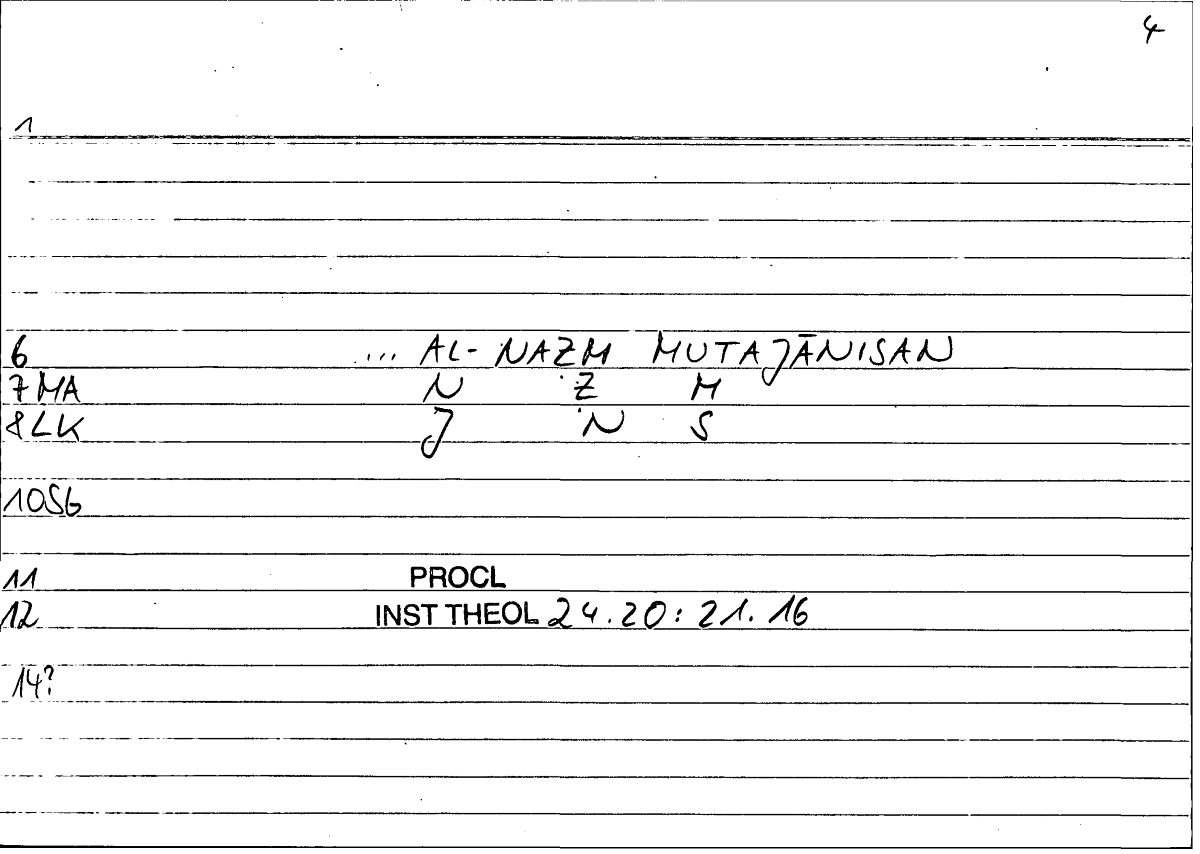 4
1
6 ... AL-NAẒM MUTAJĀNISAN
7 MA N Ẓ M
8 LK J N S
10 SG
11 PROCL
12 INST THEOL 24.20: 21.16
14?